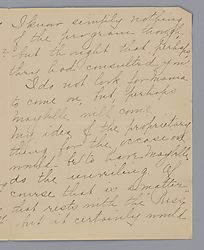 I know simply nothing
of the program though
but thought that perhaps
they had consulted you.
I do not look for Mama
to come on, but perhaps
Maybelle will come.
My idea of the proprietary
thing for the occasion
would be to have Maybelle
do the unveiling. Of
course that is a matter
that rests with the
but it certainly would